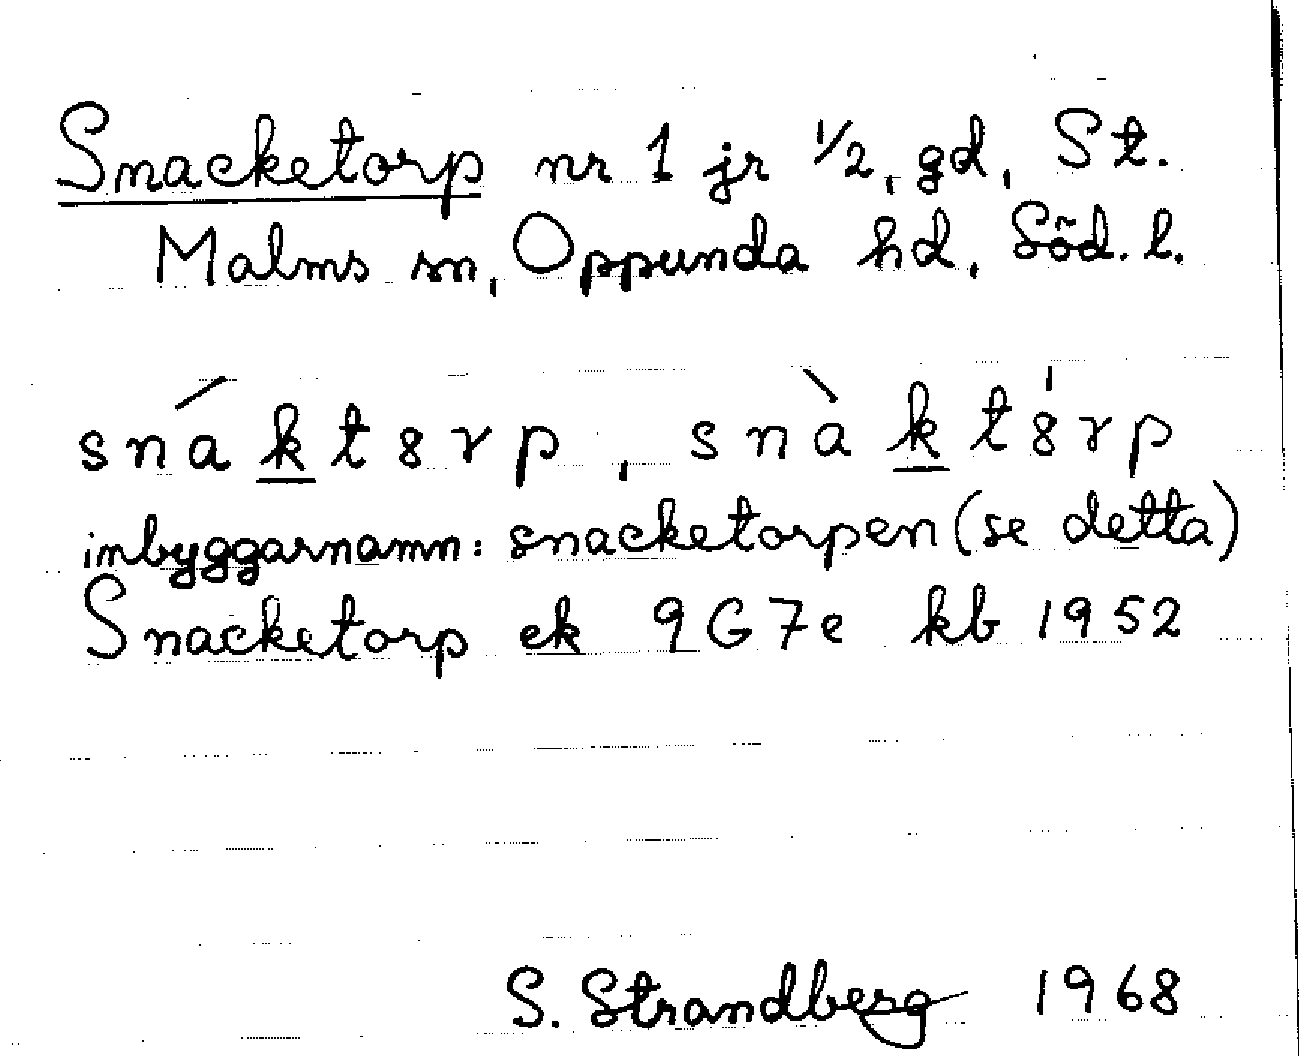 Snacketorp nr 1 jr 1/2, gd, St.
Malms sn, Oppunda hd, Söd. l.
snákt8rp, snàkt8́rp
inbyggarnamn: snacketorpen (se detta)
Snacketorp ek 9G7e kb 1952
S. Strandberg 1968